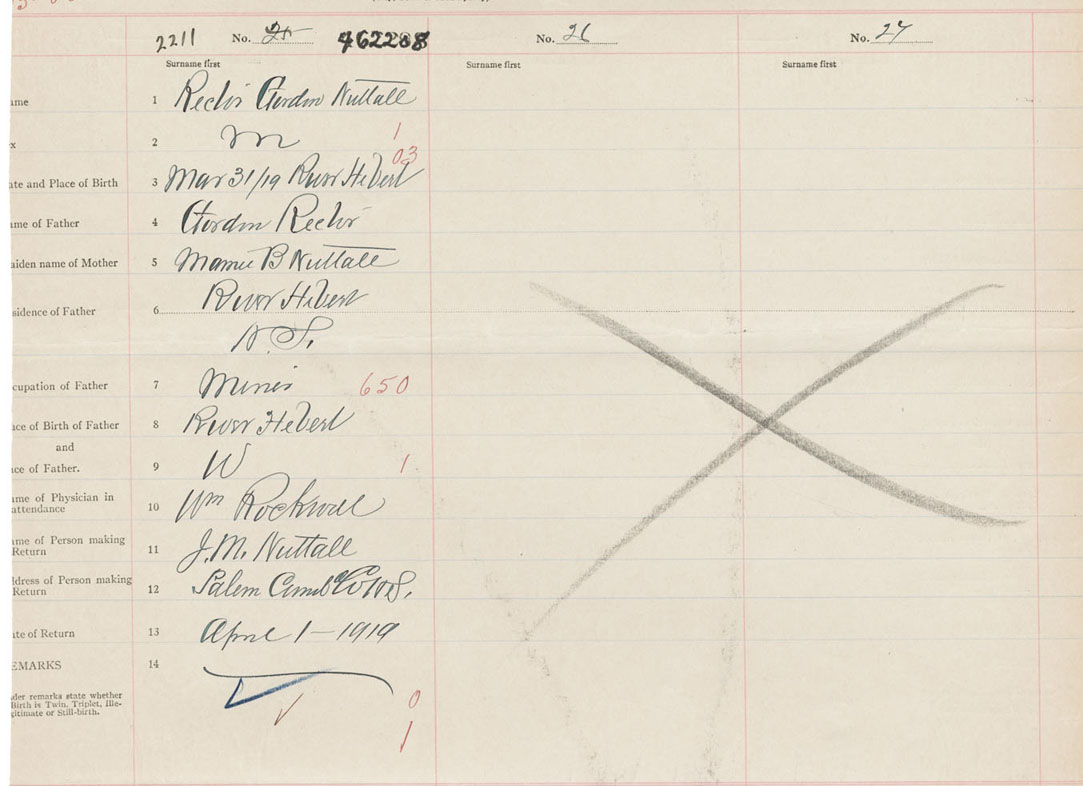 2211 No. 25 462208 No. 26 No. 27
Surname first Surname first Surname first
ame 1 Rector Gordon Nuttall
x 2 M 1
03
ate and Place of Birth 3 Mar 31/19 River Hebert
ame of Father 4 Gordon Rector
aiden name of Mother 5 Mamie B Nuttall
River Hebert
sidence of Father 6
N.S.
cupation of Father 7 Miner 650
ce of Birth of Father 8 River Hebert
and
ce of Father. 9 W 1
ame of Physician in
attendance 10 Wm Rockwell
ame of Person making
Return 11 J.M. Nuttall
ddress of Person making
Return 12 Salem Cumb Co N.S.
ate of Return 13 April 1-1919
EMARKS 14
der remarks state whether
Birth is Twin, Triplet, Ille-
gitimate or Still-birth.
0
1